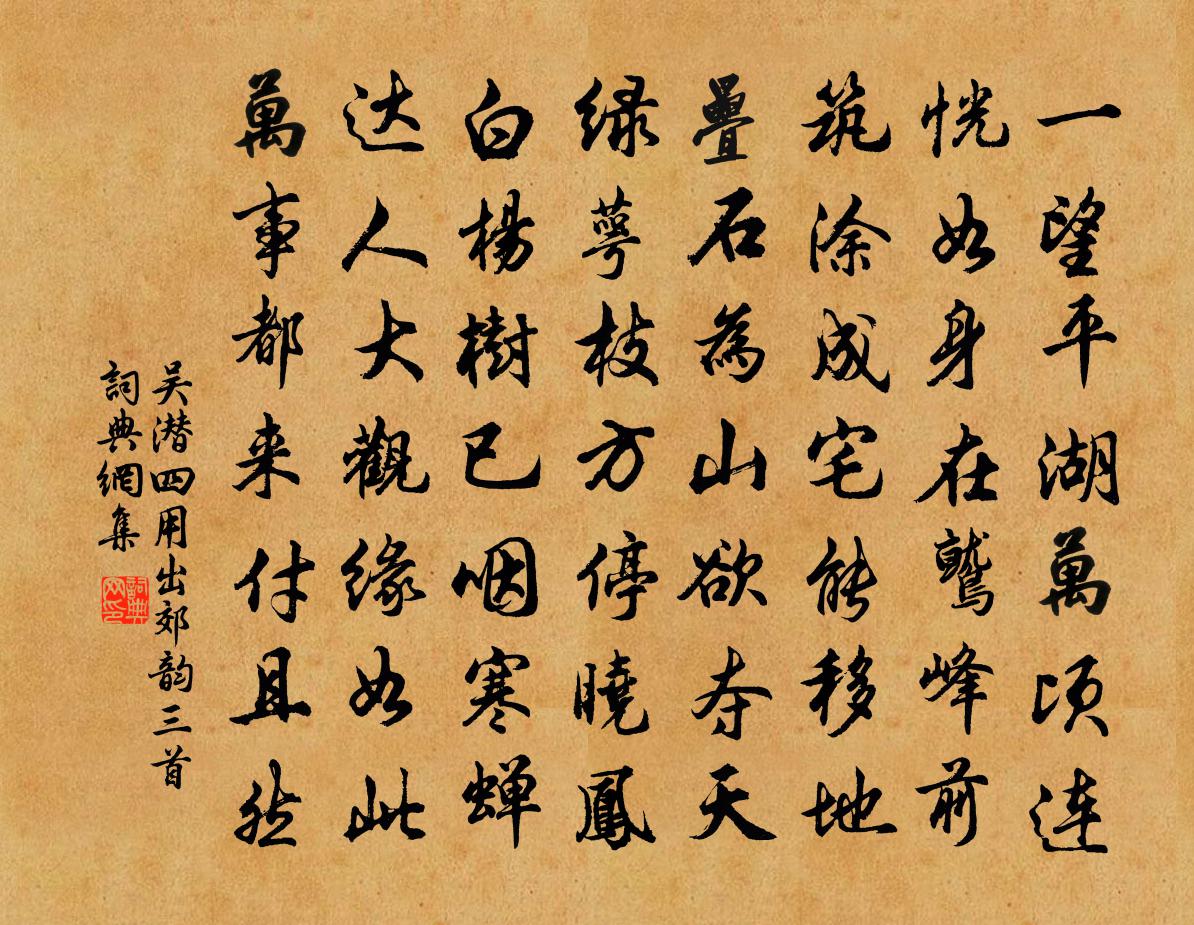 一望平湖萬顷连
恍如身在鷲峰前
筑涂成宅能移地
疊石為山欲夺天
绿萼枝方停曉鳳
白楊樹已咽寒蝉
达人大觀缘如此
萬事都来付且然
吴潜四用出郊韵三首
詞典網集
詞典网印